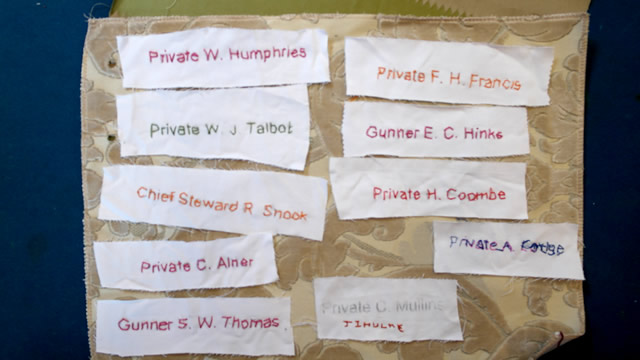 Private W. Humphries
Private F. H. Francis
Private W. J. Talbot
Gunner E. C. Hinks
Chief Steward R. Snook
Private H. Coombe
Private A.
Private C. Alner
Private C. Mullins
Gunner S. W. Thomas